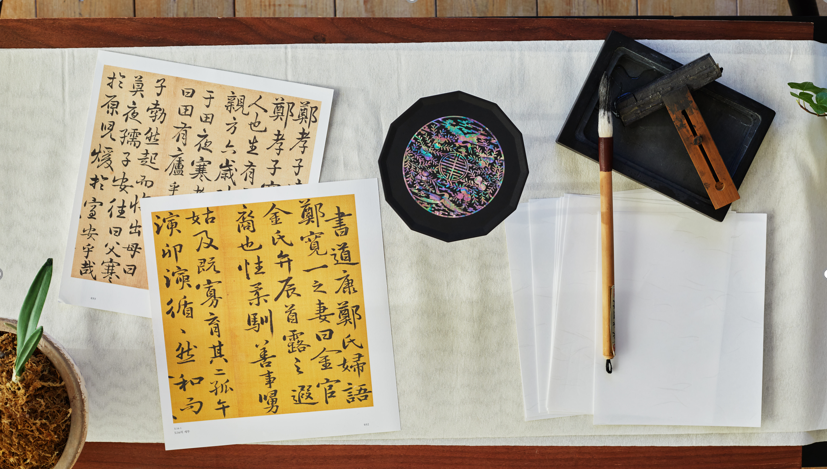 鄭孝子
鄭孝子
人也生有
親方六歲
于田夜寒
曰田有廬
子勃然起而出母曰
莫夜孺子安往曰父寒
於原兒煖於室安乎哉
書道康鄭氏婦語
鄭寬一之妻曰金官
金氏弁辰首露之遐
裔也性柔馴善事舅
姑及既寡育其二孤午
演卯演循〻然和而